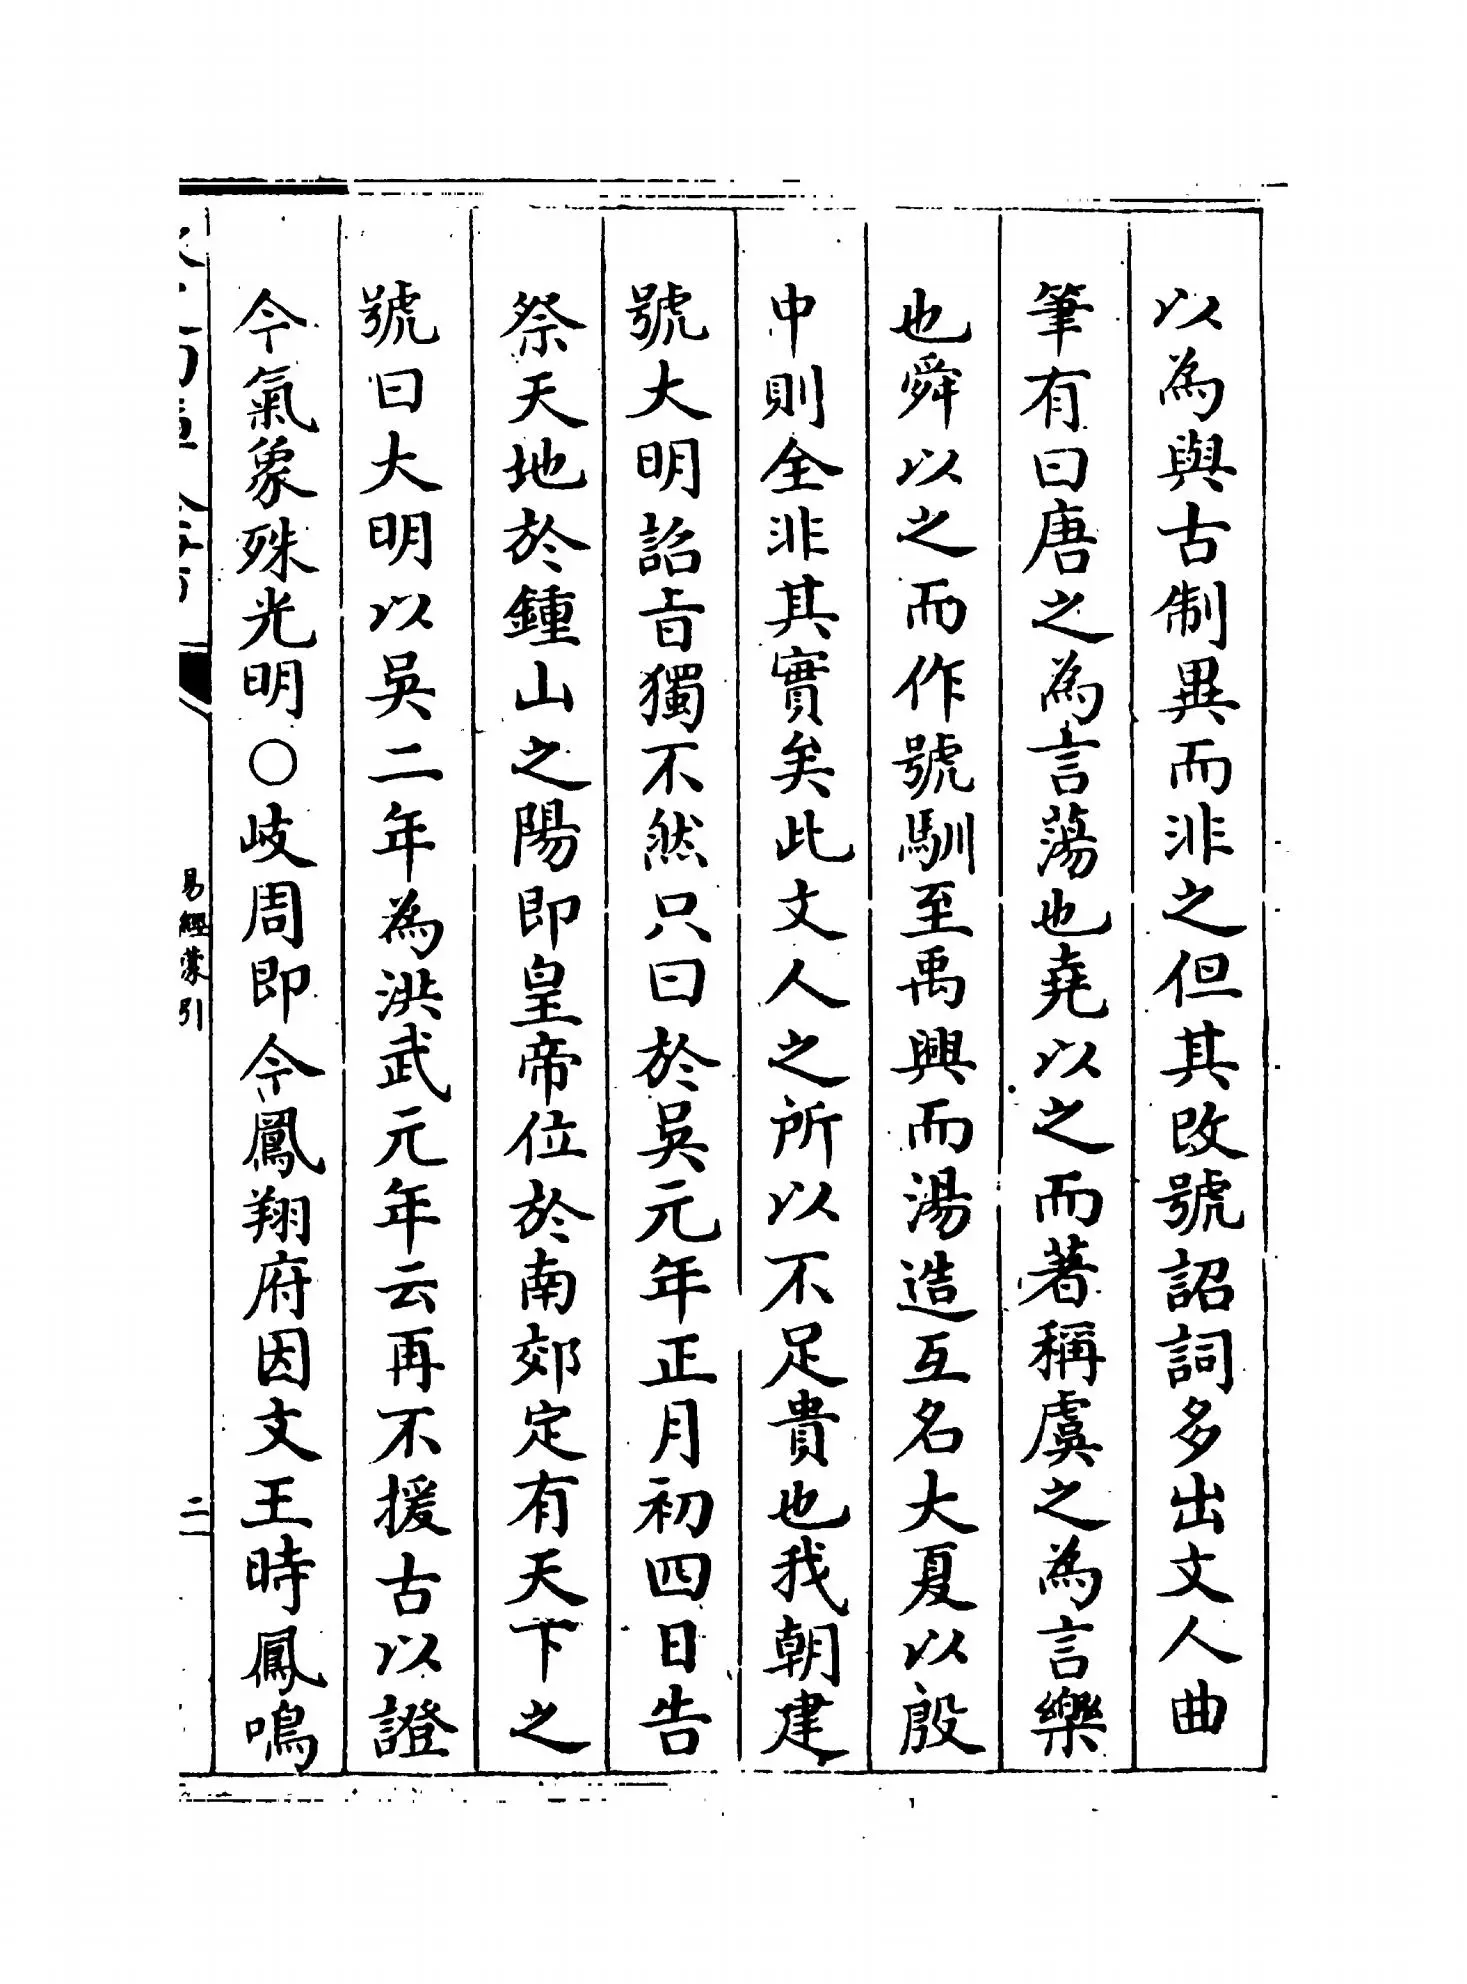 以為與古制異而非之但其改號詔詞多出文人曲
筆有曰唐之為言蕩也堯以之而著稱虞之為言樂
也舜以之而作號馴至禹興而湯造互名大夏以殷
中則全非其實矣此文人之所以不足貴也我朝建
號大明詔旨獨不然只曰於吳元年正月初四日告
祭天地於鍾山之陽即皇帝位於南郊定有天下之
號曰大明以吳二年為洪武元年云再不援古以證
今氣象殊光明○岐周即今鳳翔府因文王時鳳鳴
易經蒙引
二